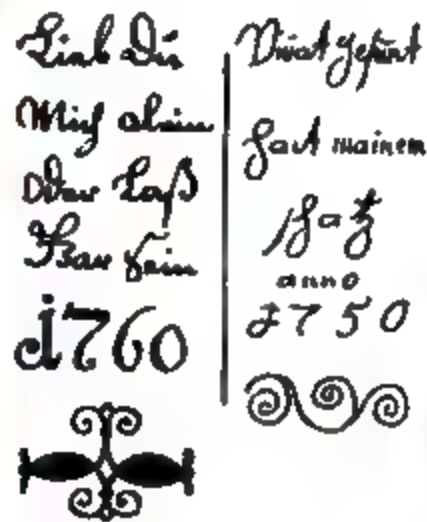 Lieb Du
Mich alein
Oder Laß
sein
1760
Vivat gesunt
mainem
anno
1750